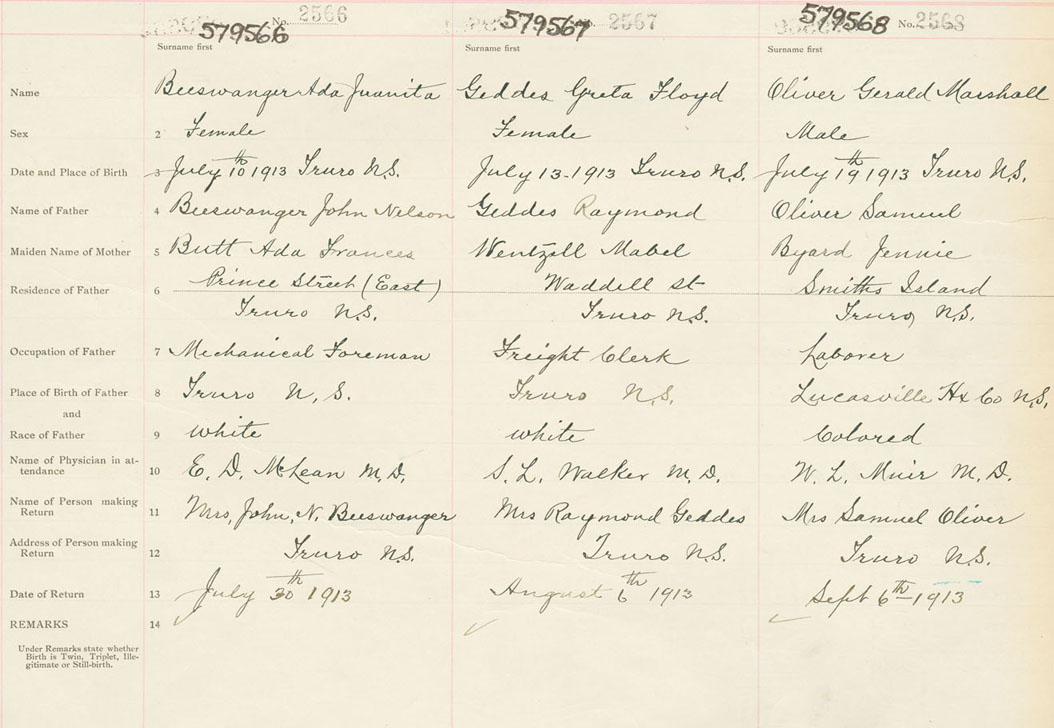 579566 No. 2566 579567 No. 2567 579568 No. 2568
Surname first Surname first Surname first
Name Beeswanger Ada Juanita Geddes Greta Floyd Oliver Gerald Marshall
Sex 2 Female Female Male
Date and Place of Birth 3 July 10th 1913 Truro N.S. July 13-1913 Truro N.S. July 19th 1913 Truro N.S.
Name of Father 4 Beeswanger John Nelson Geddes Raymond Oliver Samuel
Maiden Name of Mother 5 Butt Ada Frances Wentzell Mabel Byard Jennie
Residence of Father 6 Prince Street (East) Waddell St Smiths Island
Truro N.S. Truro N.S. Truro N.S.
Occupation of Father 7 Mechanical Foreman Freight Clerk Laborer
Place of Birth of Father 8 Truro N.S. Truro N.S. Lucasville Hx Co N.S.
and
Race of Father 9 White White Colored
Name of Physician in at-
tendance 10 E. D. McLean M.D. S. L. Walker M.D. W. L. Muir M.D.
Name of Person making
Return 11 Mrs. John. N. Beeswanger Mrs Raymond Geddes Mrs Samuel Oliver
Address of Person making
Return 12 Truro N.S. Truro N.S. Truro N.S.
Date of Return 13 July 30th 1913 August 6th 1913 Sept 6th-1913
REMARKS 14
Under Remarks state whether
Birth is Twin, Triplet, Ille-
gitimate or Still-birth.